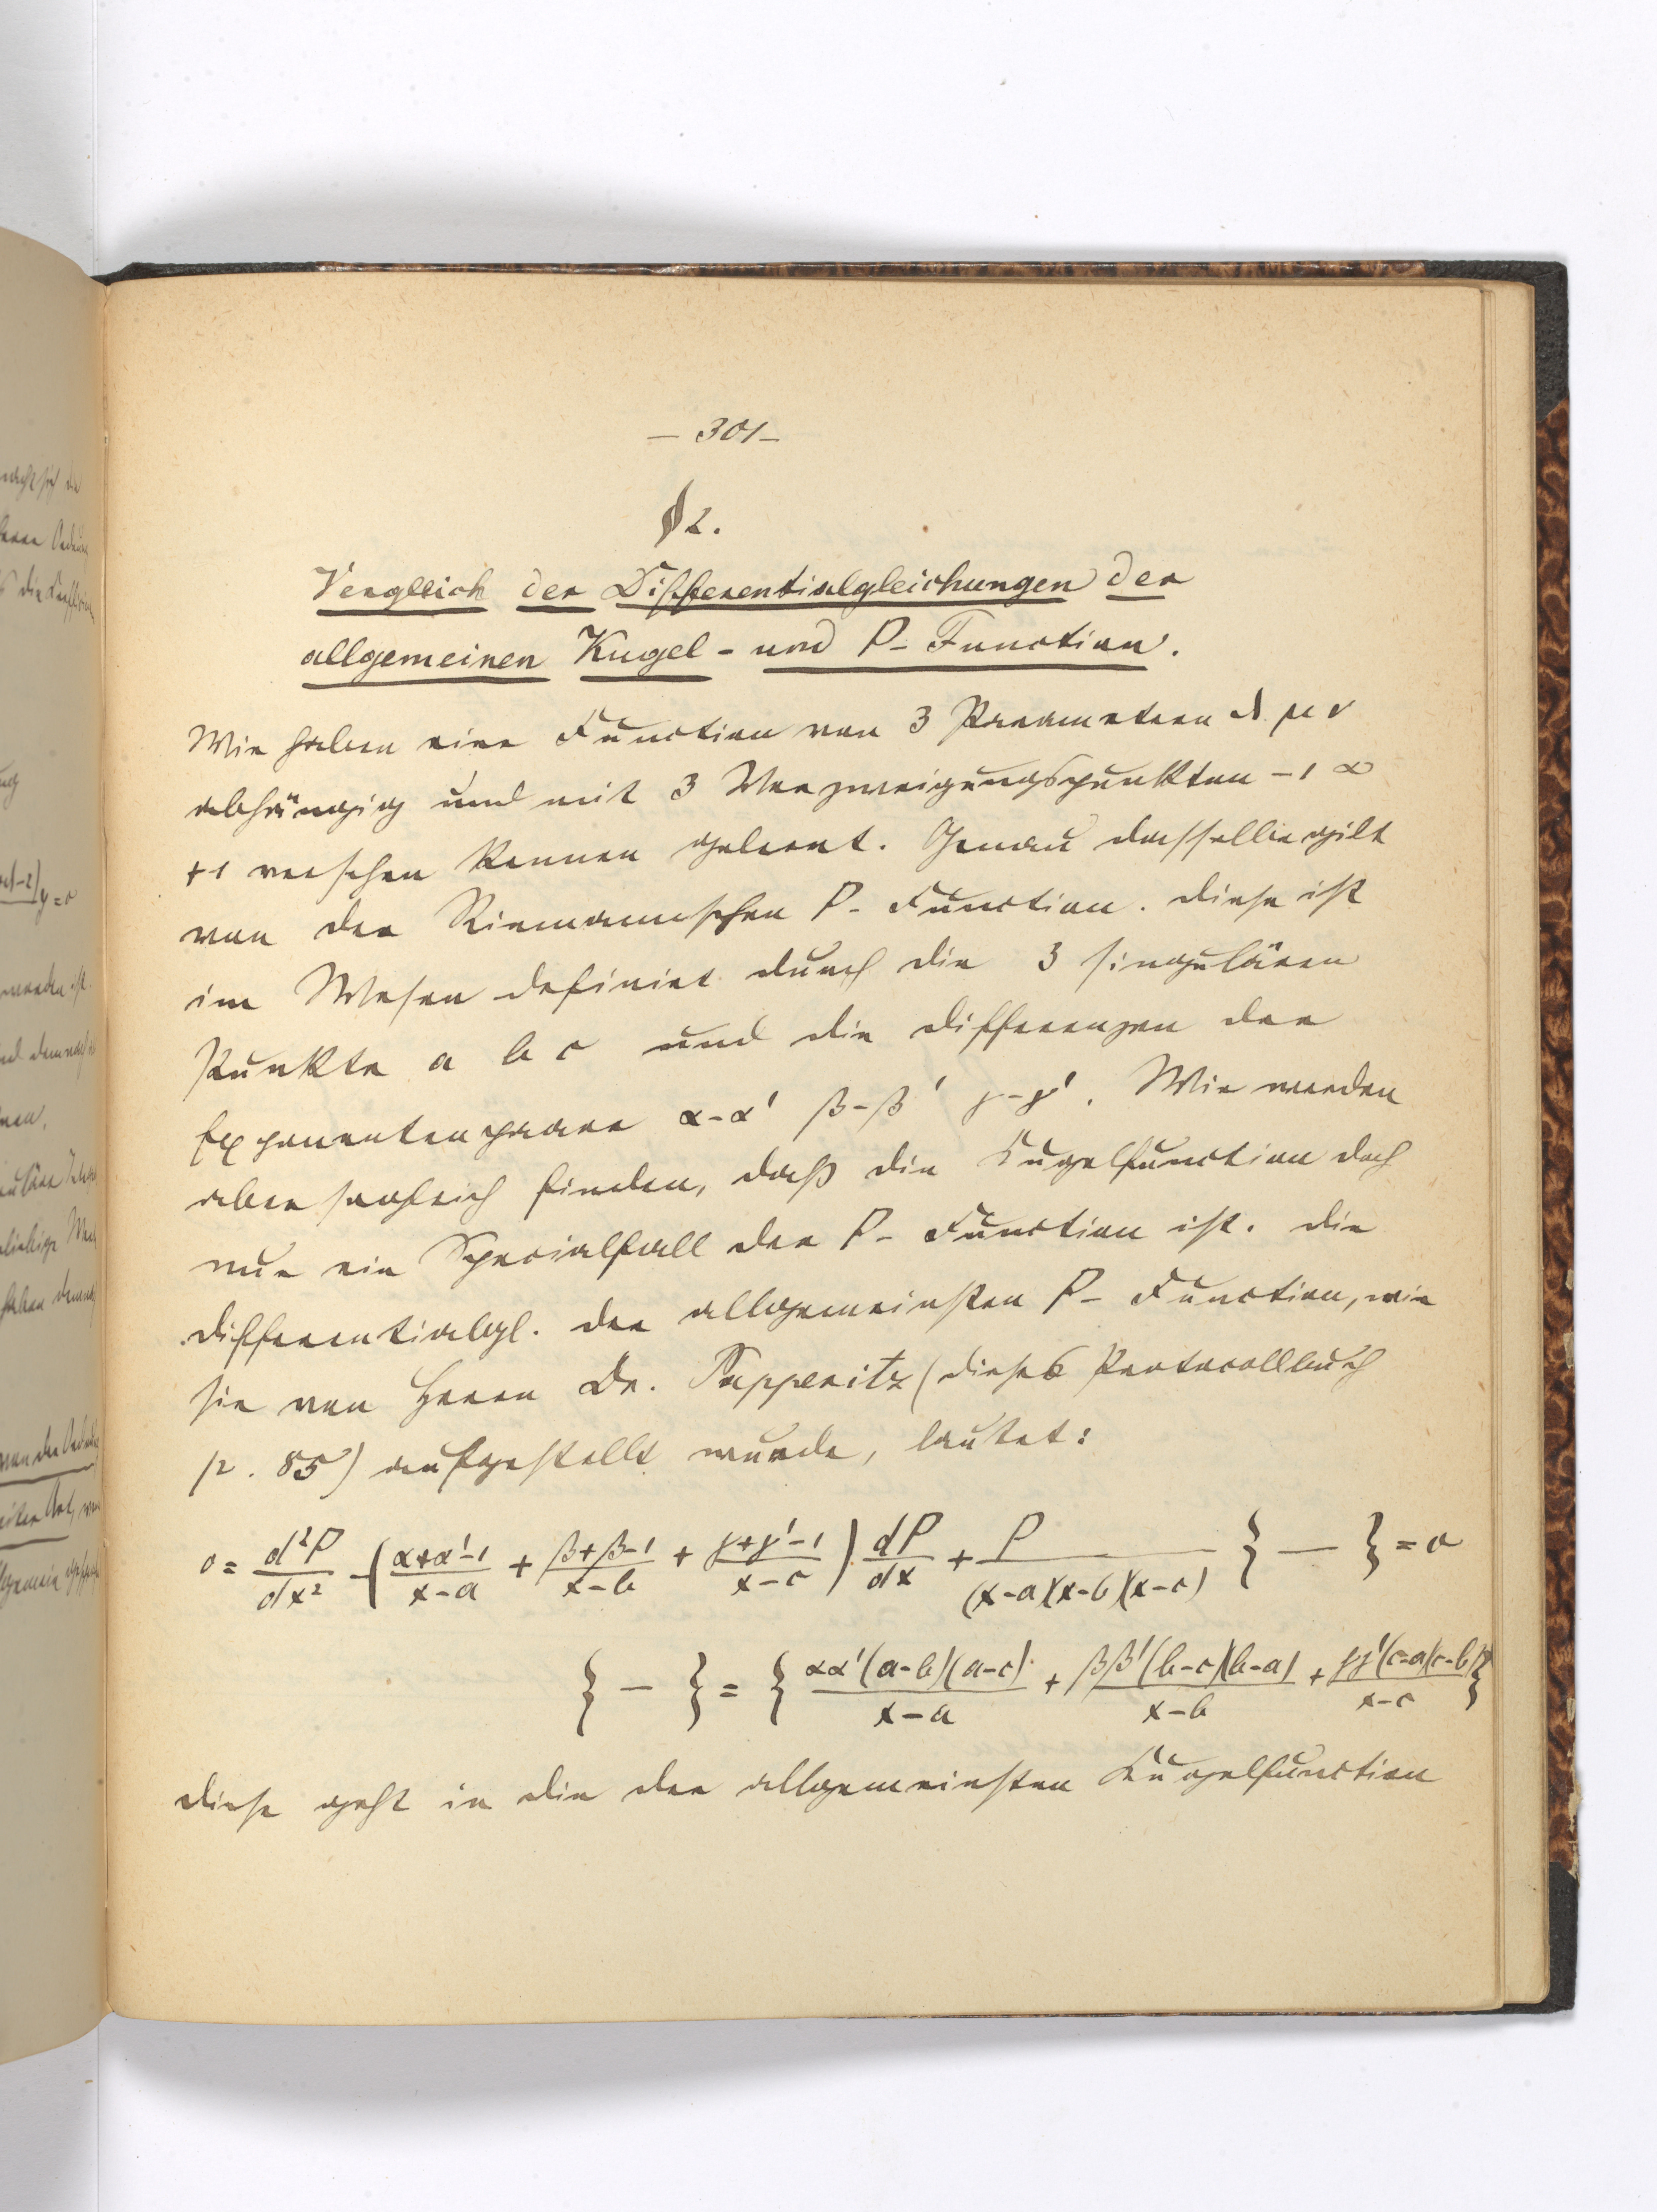 — 301 —
§ 2.
Vergleich der Differentialgleichungen der
allgemeinen Kugel- und P-Function.
Wir haben eine Function von 3 Parametern d μ ν
abhängig und mit 3 Verzweigungspunkten -1 ∞
+1 versehen kennen gelernt. Genau dasselbe gilt
von der Riemannschen P-Function. Diese ist
im Wesen definirt durch die 3 singulären
Punkte a b c und die Differenzen der
Exponentenpaare α-α' β-β' γ-γ'. Wir werden
aber sogleich finden, daß die Kugelfunction doch
nur ein Specialfall der P-Function ist. Die
Differentialgl. der allgemeinsten P-Function, wie
sie von Herrn Dr. Papperitz (dieses Protocollbuch
p. 85) aufgestellt wurde, lautet:
0 = d²P/dx² - ( (α+α'-1)/(x-a) + (β+β-1)/(x-b) + (γ+γ'-1)/(x-c) ) · dP/dx + P/((x-a)(x-b)(x-c)) { — } = 0
{ — } = { αα'(a-b)(a-c)/(x-a) + ββ'(b-c)(b-a)/(x-b) + γγ'(c-a)(c-b)/(x-c) }
Diese geht in die der allgemeinsten Kugelfunction